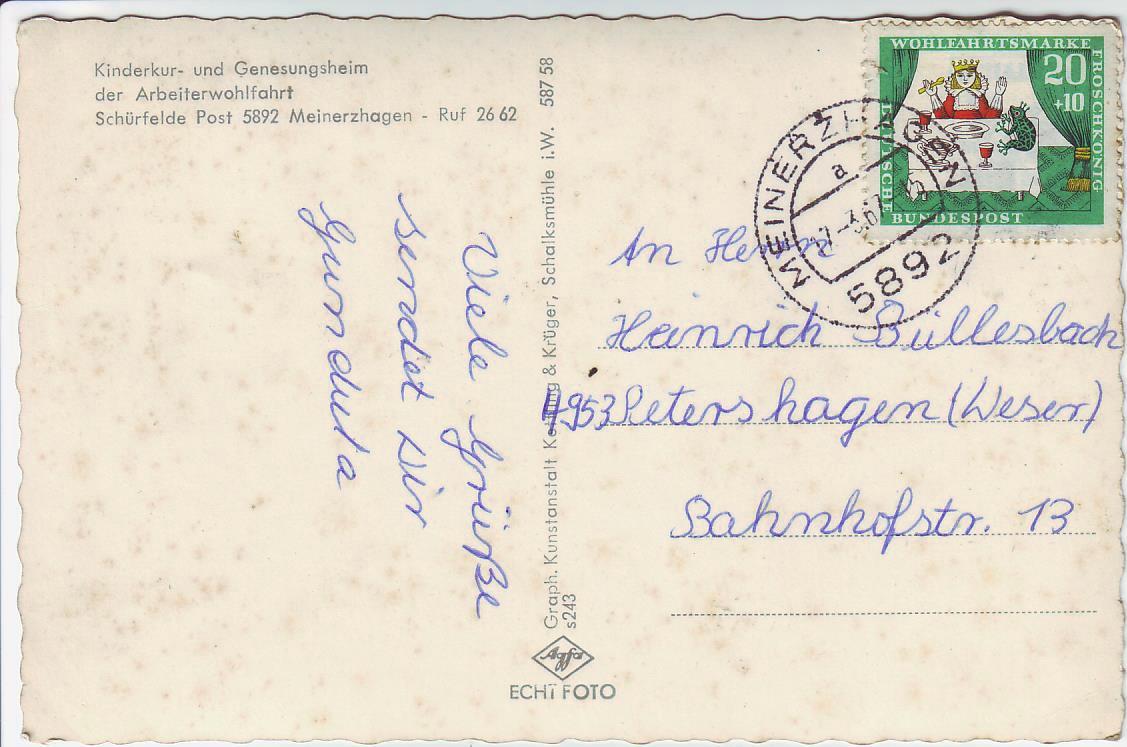 Kinderkur- und Genesungsheim
der Arbeiterwohlfahrt
Schürfelde Post 5892 Meinerzhagen - Ruf 26 62
Viele Grüße
sendet Dir
Gunduta
Graph. Kunstanstalt & Krüger, Schalksmühle i.W. 587 58
s243
Agfa
ECHT FOTO
WOHLFAHRTSMARKE
20
+10
FROSCHKÖNIG
DEUTSCHE
BUNDESPOST
MEINERZHAGEN
a
5892
An Herrn
Heinrich Büllesbach
4953 Petershagen (Weser)
Bahnhofstr. 13